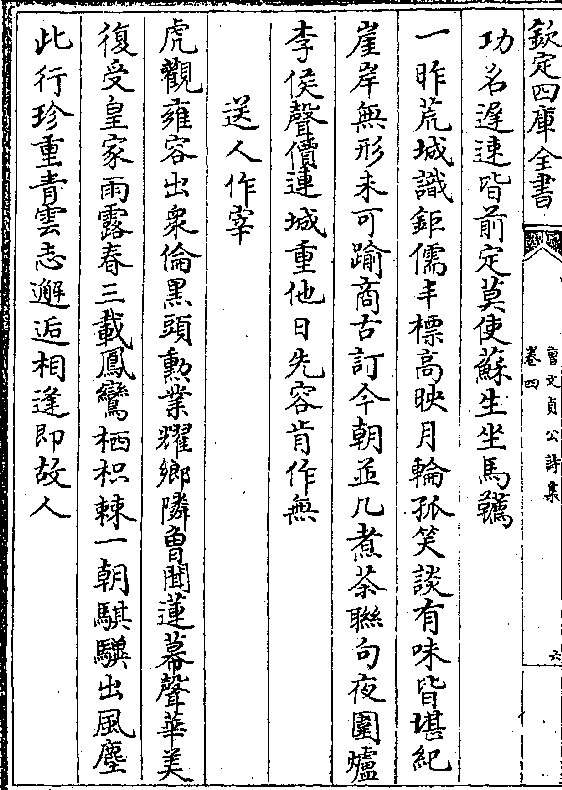 欽定四庫全書
曹文貞公詩集
卷四
六
功名遲速皆前定莫使蘇生坐馬韉
一昨荒城識鉅儒丰標高映月輪孤笑談有味皆堪紀
崖岸無形未可踰商古訂今朝並几煮茶聯句夜圍爐
李侯聲價連城重他日先容肯作無
送人作宰
虎觀雍容出衆倫黒頭勲業耀鄉隣曾聞蓮幕聲華美
復受皇家雨露春三載鳳鸞栖枳棘一朝騏驥出風塵
此行珍重青雲志邂逅相逢即故人